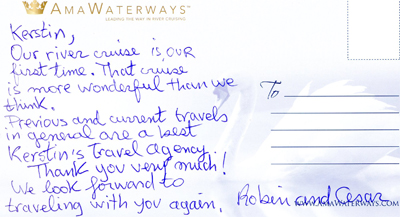 AMAWATERWAYS™
LEADING THE WAY IN RIVER CRUISING
Kerstin,
Our river cruise is OUR
first time. That cruise
is more wonderful than we
think.
Previous and current travels
in general are a best
Kerstin's Travel agency.
Thank you very much!
We look forward to
traveling with you again.
To
Robin and Cesar
WWW.AMAWATERWAYS.COM